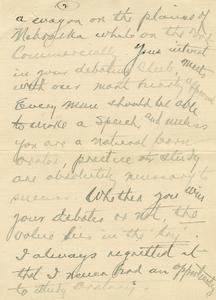 (2)
a wagon on the plains of
Nebraska while on the
Commercially. Your interest
in your debating Club, meets
with our most hearty approval
Every man should be able
to make a speech, and unless
you are a natural born
orator, practice or study
are absolutely necessary to
success. Whether you win
your debates or not, the
value lies in the "try".
I always regretted it
that I never had an opportunity
to study oratory.